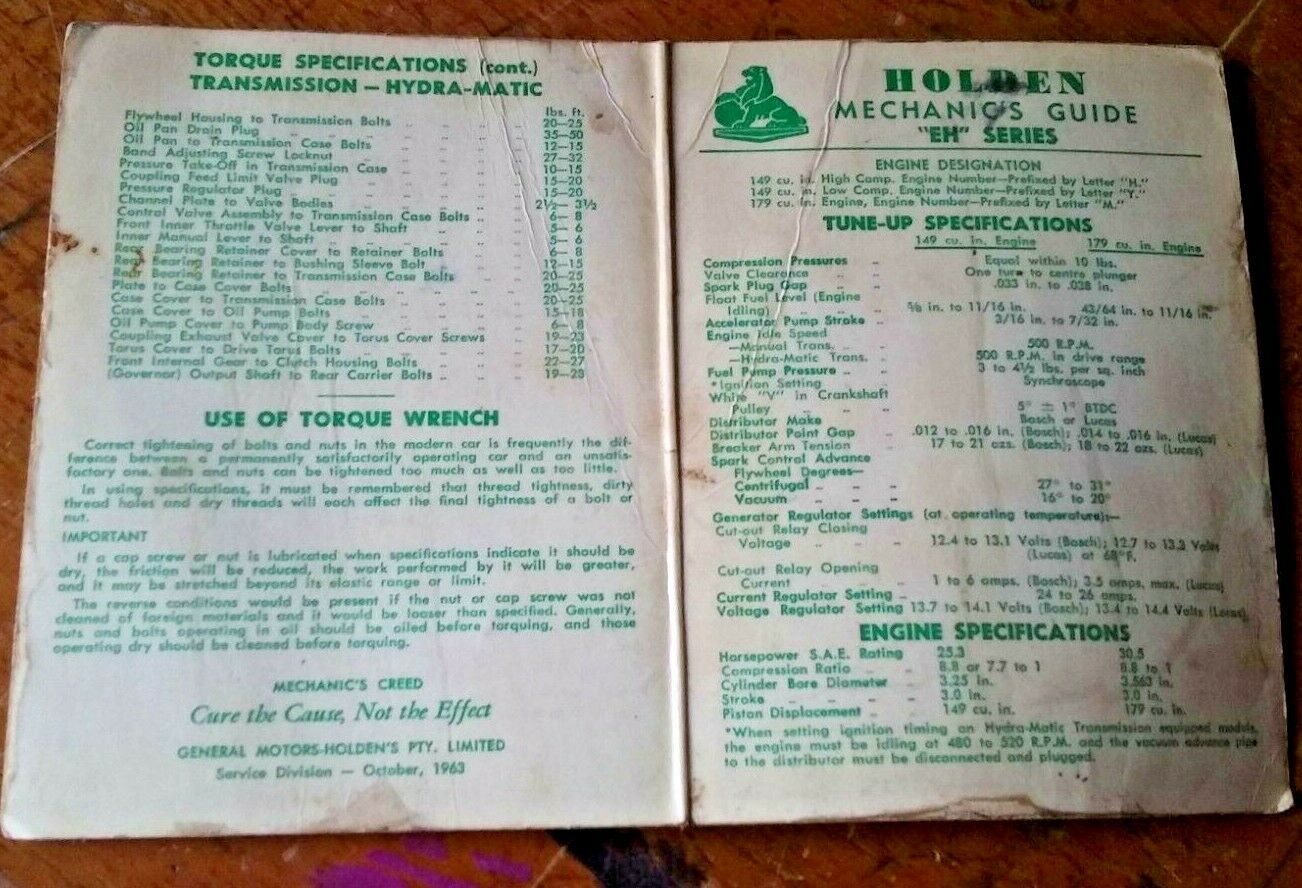 TORQUE SPECIFICATIONS (cont.)
TRANSMISSION — HYDRA-MATIC
lbs. ft.
Flywheel Housing to Transmission Bolts .. .. .. .. 20—25
Oil Pan Drain Plug .. .. .. .. .. .. 35—50
Oil Pan to Transmission Case Bolts .. .. .. .. 12—15
Band Adjusting Screw Locknut .. .. .. .. .. 27—32
Pressure Take-Off in Transmission Case .. .. .. .. 10—15
Coupling Feed Limit Valve Plug .. .. .. .. .. 15—20
Pressure Regulator Plug .. .. .. .. .. .. 15—20
Channel Plate to Valve Bodies .. .. .. .. .. 2½— 3½
Control Valve Assembly to Transmission Case Bolts .. .. 6— 8
Front Inner Throttle Valve Lever to Shaft .. .. .. 5— 6
Inner Manual Lever to Shaft .. .. .. .. .. 5— 6
Rear Bearing Retainer Cover to Retainer Bolts .. .. 6— 8
Rear Bearing Retainer to Bushing Sleeve Bolt .. .. .. 12—15
Rear Bearing Retainer to Transmission Case Bolts .. .. 20—25
Plate to Case Cover Bolts .. .. .. .. .. 20—25
Case Cover to Transmission Case Bolts .. .. .. .. 20—25
Case Cover to Oil Pump Bolts .. .. .. .. .. 15—18
Oil Pump Cover to Pump Body Screw .. .. .. .. 6— 8
Coupling Exhaust Valve Cover to Torus Cover Screws .. 19—23
Torus Cover to Drive Torus Bolts .. .. .. .. 17—20
Front Internal Gear to Clutch Housing Bolts .. .. .. 22—27
(Governor) Output Shaft to Rear Carrier Bolts .. .. .. 19—23
USE OF TORQUE WRENCH
Correct tightening of bolts and nuts in the modern car is frequently the dif-
ference between a permanently satisfactorily operating car and an unsatis-
factory one. Bolts and nuts can be tightened too much as well as too little.
In using specifications, it must be remembered that thread tightness, dirty
thread holes and dry threads will each affect the final tightness of a bolt or
nut.
IMPORTANT
If a cap screw or nut is lubricated when specifications indicate it should be
dry, the friction will be reduced, the work performed by it will be greater,
and it may be stretched beyond its elastic range or limit.
The reverse conditions would be present if the nut or cap screw was not
cleaned of foreign materials and it would be looser than specified. Generally,
nuts and bolts operating in oil should be oiled before torquing, and those
operating dry should be cleaned before torquing.
MECHANIC'S CREED
Cure the Cause, Not the Effect
GENERAL MOTORS-HOLDEN'S PTY. LIMITED
Service Division — October, 1963
HOLDEN
MECHANIC'S GUIDE
"EH" SERIES
ENGINE DESIGNATION
149 cu. in. High Comp. Engine Number—Prefixed by Letter "H."
149 cu. in. Low Comp. Engine Number—Prefixed by Letter "Y."
179 cu. in. Engine, Engine Number—Prefixed by Letter "M."
TUNE-UP SPECIFICATIONS
149 cu. in. Engine 179 cu. in. Engine
Compression Pressures .. Equal within 10 lbs.
Valve Clearance .. .. .. One turn to centre plunger
Spark Plug Gap .. .. .. .033 in. to .038 in.
Float Fuel Level (Engine
Idling) .. .. .. .. ⅝ in. to 11/16 in. 43/64 in. to 11/16 in.
Accelerator Pump Stroke .. 3/16 in. to 7/32 in.
Engine Idle Speed
—Manual Trans. .. .. 500 R.P.M.
—Hydra-Matic Trans. .. 500 R.P.M. in drive range
Fuel Pump Pressure .. .. 3 to 4½ lbs. per sq. inch
*Ignition Setting .. .. Synchroscope
White "V" in Crankshaft
Pulley .. .. .. .. 5° ± 1° BTDC
Distributor Make .. .. Bosch or Lucas
Distributor Point Gap .. .012 to .016 in. (Bosch); .014 to .016 in. (Lucas)
Breaker Arm Tension .. 17 to 21 ozs. (Bosch); 18 to 22 ozs. (Lucas)
Spark Control Advance
Flywheel Degrees—
Centrifugal .. .. .. 27° to 31°
Vacuum .. .. .. .. 16° to 20°
Generator Regulator Settings (at operating temperature):—
Cut-out Relay Closing
Voltage .. .. .. .. 12.4 to 13.1 Volts (Bosch); 12.7 to 13.3 Volts
(Lucas) at 68°F.
Cut-out Relay Opening
Current .. .. .. .. 1 to 6 amps. (Bosch); 3.5 amps. max. (Lucas)
Current Regulator Setting .. 24 to 26 amps.
Voltage Regulator Setting 13.7 to 14.1 Volts (Bosch); 13.4 to 14.4 Volts (Lucas)
ENGINE SPECIFICATIONS
Horsepower S.A.E. Rating 25.3 30.5
Compression Ratio .. .. 8.8 or 7.7 to 1 8.8 to 1
Cylinder Bore Diameter .. 3.25 in. 3.563 in.
Stroke .. .. .. .. 3.0 in. 3.0 in.
Piston Displacement .. .. 149 cu. in. 179 cu. in.
*When setting ignition timing on Hydra-Matic Transmission equipped models,
the engine must be idling at 480 to 520 R.P.M. and the vacuum advance pipe
to the distributor must be disconnected and plugged.